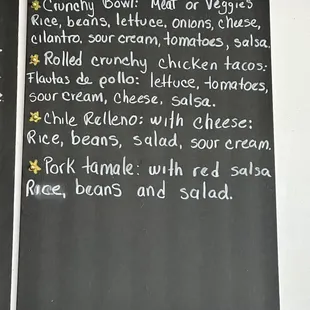 Crunchy Bowl: Meat or Veggies
Rice, beans, lettuce, onions, cheese,
cilantro, sour cream, tomatoes, salsa.
Rolled crunchy chicken tacos:
Flautas de pollo: lettuce, tomatoes,
sour cream, cheese, salsa.
Chile Relleno: with cheese:
Rice, beans, salad, sour cream.
Pork tamale: with red salsa
Rice, beans and salad.